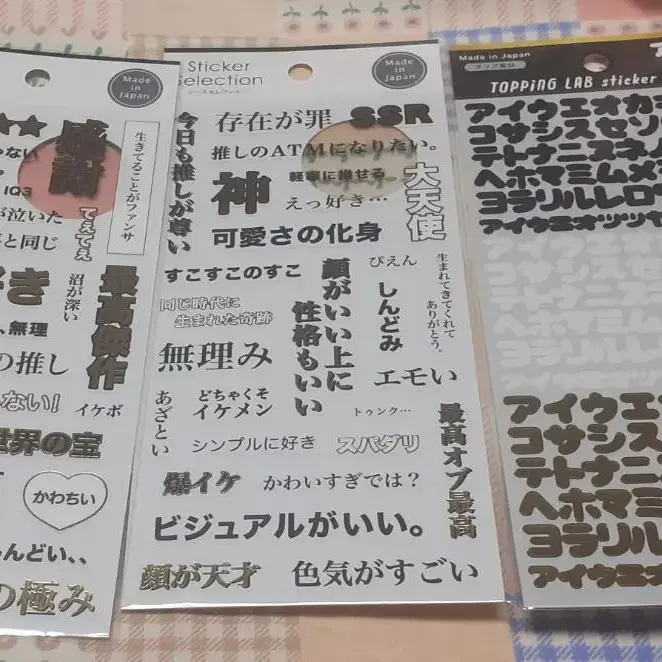 Made in Japan
感謝
生きてることがファンサ
てぇてぇ
が泣いた
と同じ
沼が深い
最高傑作
無理
の推し
ない!
イケボ
世界の宝
かわちい
んどい、、
の極み
Sticker Selection
シールセレクション
Made in Japan
今日も推しが尊い
存在が罪
SSR
推しのATMになりたい。
神
軽率に推せる
えっ好き…
大天使
可愛さの化身
すこすこのすこ
顔がいい上に性格もいい
ぴえん
生まれてきてくれてありがとう。
しんどみ
同じ時代に
生まれた奇跡
無理み
エモい
あざとい
どちゃくそ
イケメン
トゥンク…
最高オブ最高
シンプルに好き
スパダリ
爆イケ
かわいすぎでは?
ビジュアルがいい。
顔が天才
色気がすごい
Made in Japan
TOPPiNG LAB sticker
アイウエオカ
コサシスセソ
テトナニヌネ
ヘホマミムメ
ヨラリルレロ
アイウエオツッセ
アイウエ
コサシス
テトナニ
ヘホマミ
ヨラリル
アイウエ
アイウエ
コサシス
テトナニ
ヘホマミ
ヨラリル
アイウエオ